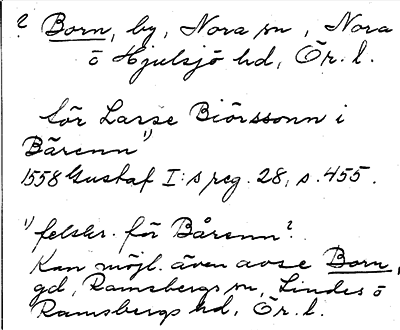 ? Born, by, Nora sn, Nora
o Hjulsjö hd, Ör. l.
för Larse Biörssonn i
Bärenn 1)
1558 Gustaf I:s reg. 28, s. 455.
1) felskr. för Bårenn?
Kan möjl. även avse Born,
gd, Ramsbergs sn, Lindes o
Ramsbergs hd, Ör. l.